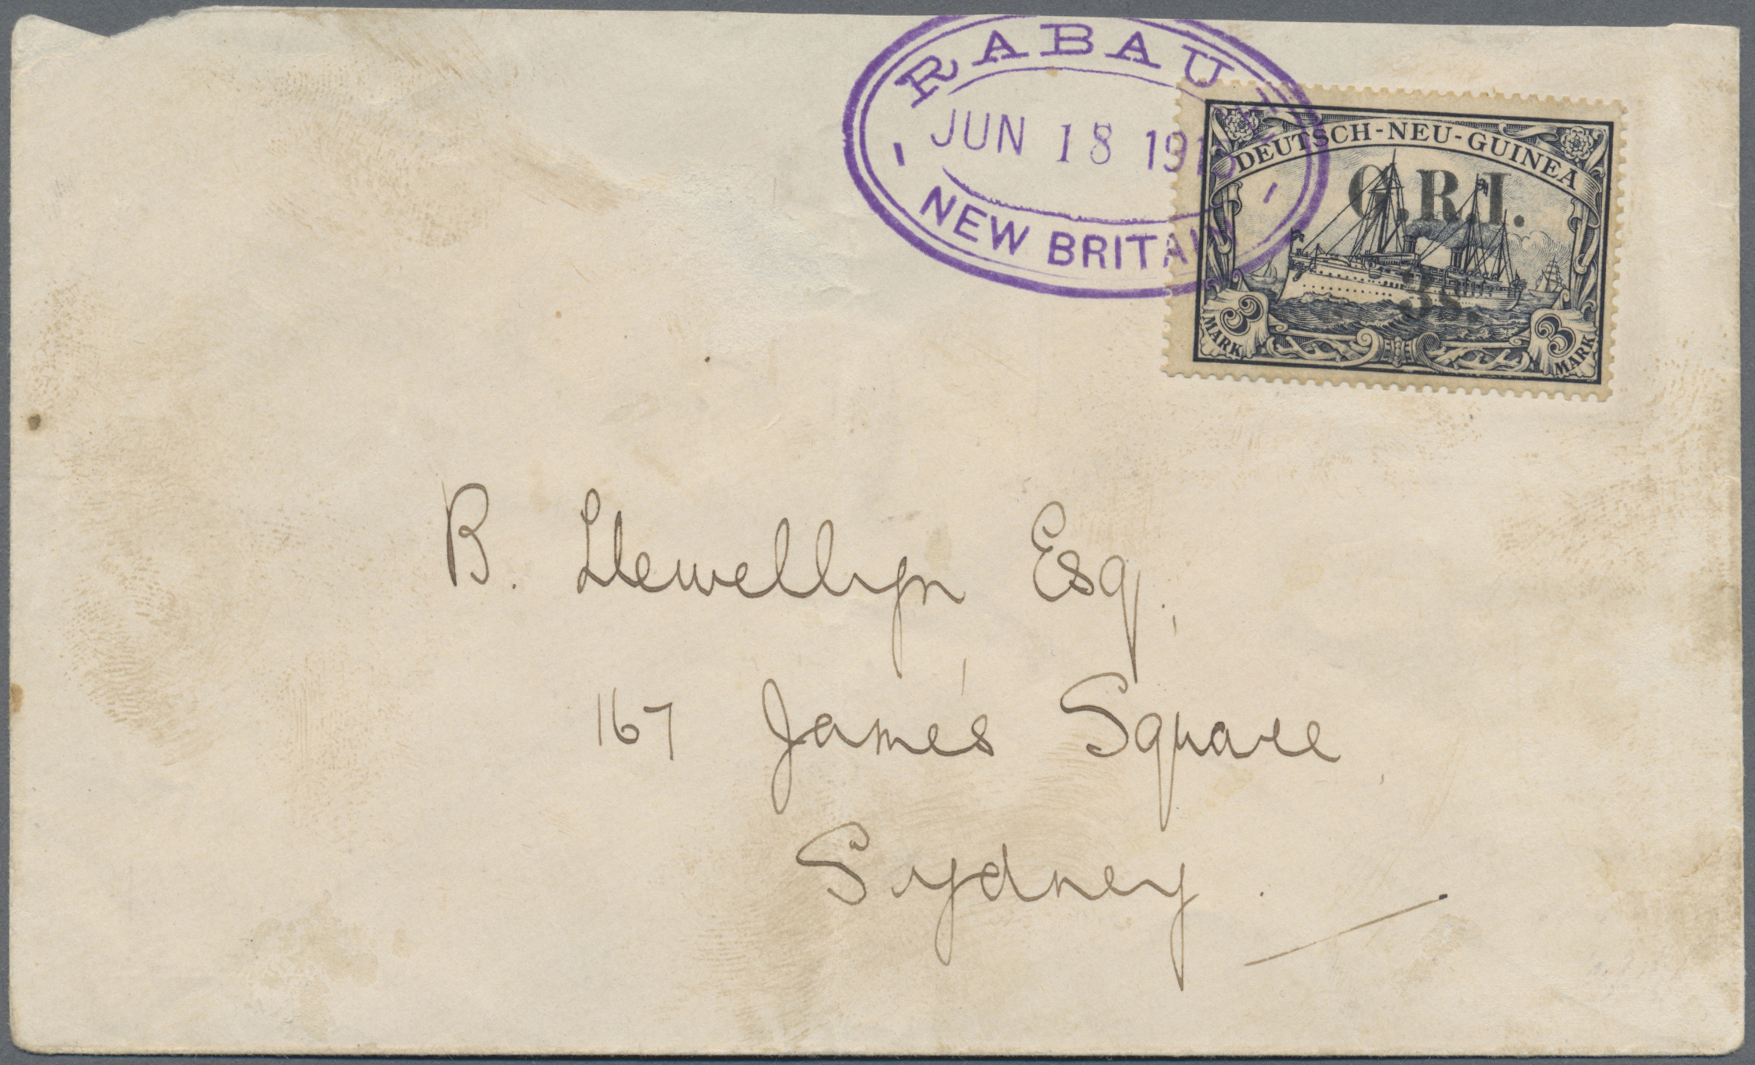 RABAUL
JUN 18 1915
NEW BRITAIN
DEUTSCH-NEU-GUINEA
G.R.I.
3s.
3 MARK
3 MARK
B. Llewellyn Esq.
167 James Square
Sydney.